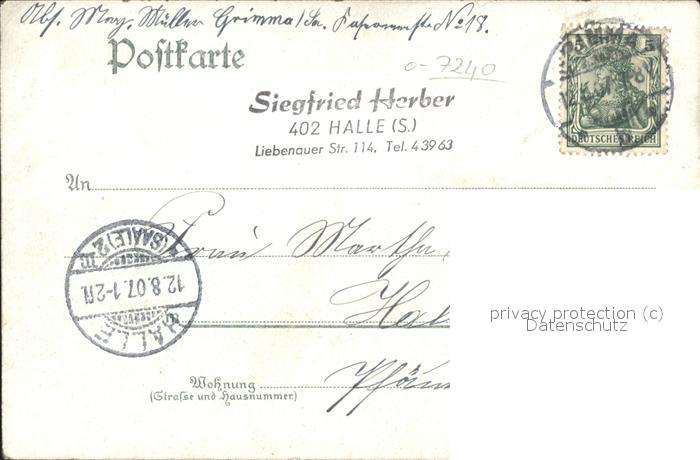 Abs. Müller Grimma No 18.
Postkarte
o- 7240
Siegfried Herber
402 HALLE (S.)
Liebenauer Str. 114, Tel. 4 39 63
5
DEUTSCHES REICH
An
Frau Martha
HALLE
12.8.07. 1-2N.
(SAALE) 2 m
privacy protection (c)
Datenschutz
Wohnung
(Strasse und Hausnummer)